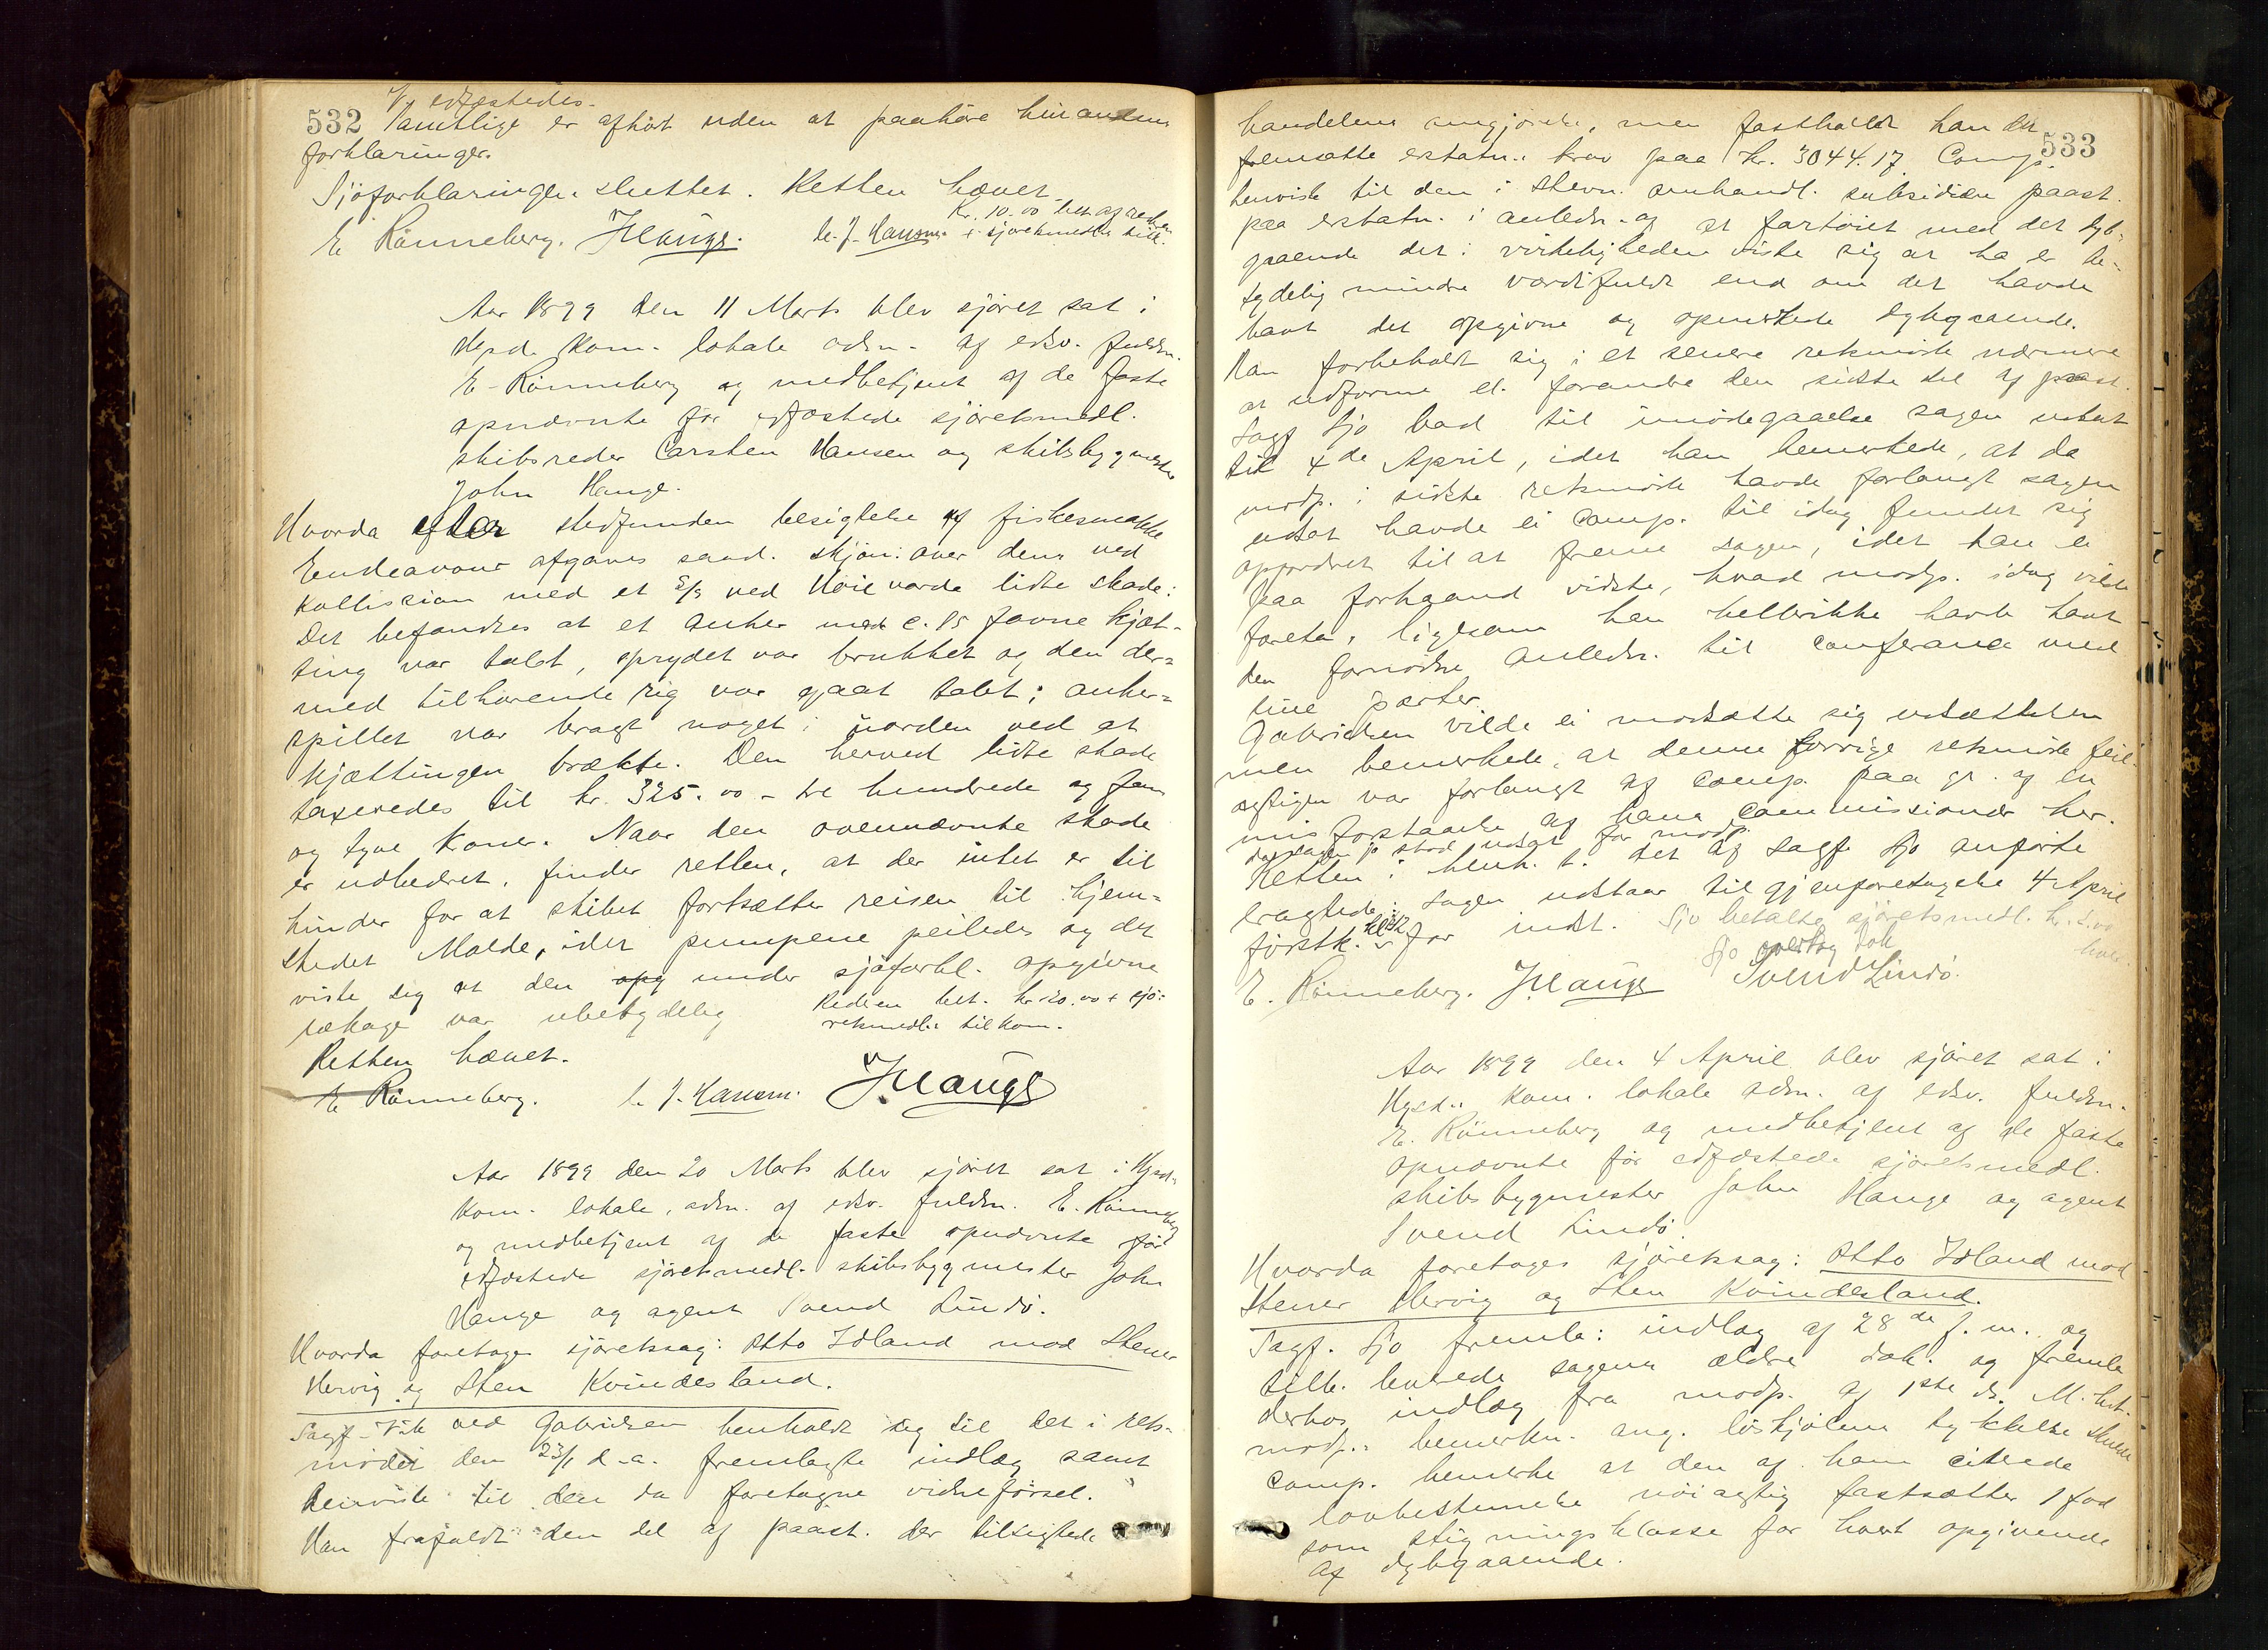 532
V. edfæstedes.
Samtlige er afhört uden at paahöre hinandens
forklaringer.
Sjöforklaringen sluttet. Retten hævet.
Kr. 10.00 bet. af rederen
+ sjöretsmedln. tilk.
E. Rönneberg. JHauge. C. J. Hansen
Aar 1899 den 11 Marts blev sjöret sat i
Hgsd. kom. lokale adm. af edsv. fuldm.
E. Rönneberg og medbetjent af de faste
opnævnte för edfæstede sjöretsmedl.
skibsreder Carsten Hansen og skibsbygmester
John Hauge.
Hvorda efter stedfunden besigtelse af fiskesmakke
Endeavour afgaves saad. skjön: over dens ved
Kollision med et S/S ved Höievarde lidte skade:
Det befandtes at et anker med c. 15 favne kjæt-
ting var tabt, sprydet var brukket og den der-
med tilhörende rig var gaat tabt; anker-
spillet var bragt noget i uorden ved at
kjættingen brækte. Den herved lidte skade
taxeredes til kr. 325.00 - tre hundrede og fem
og tyve kroner. Naar den ovennævnte skade
er udbedret, finder retten, at der intet er til
hinder for at skibet fortsætter reisen til hjem-
stedet Molde, idet pumpene peiledes og det
viste sig at den opg under sjöforkl. opgivne
lækage var ubetydelig
Rederen bet. kr. 20.00 + sjö-
retsmedln. tilkom.
Retten hævet.
E. Rönneberg. C. J. Hansen. JHauge
Aar 1899 den 20 Marts blev sjöret sat i Hgsd.
kom. lokale, adm. af edsv. fuldm. E. Rönneberg
og medbetjent af de faste opnævnte för
edfæstede sjöretsmedl. skibsbygmester John
Hauge og agent Svend Lindö.
Hvorda foretoges sjöretssag: Otto Idland mod Stener
Hervig og Sten Kvindesland.
Sagf. ved Gabrielsen henholdt sig til det i rets-
mödet den 23/1 d.a. fremlagte indlæg samt
henviste til den da foretagne vidneförsel.
Han frafaldt den del af paast. der tilsigtede
533
handelens omgjörelse, men fastholdt han det
fremsatte erstatn. krav paa kr. 3044.17. Comp.
henviste til den i stevn. omhandl. subsidiære paast.
paa erstatn. i anledn. af at fartöiet med det dyb-
gaaende det i virkeligheden viste sig at ha er be-
tydelig mindre værdifuldt end om det havde
havt det opgivne og openerte dybgaaende.
Han forbeholdt sig i et senere retsmöde nærmere
at udforme el. forandre den sidste del af paast.
Sagf Sjo bad til imödegaaelse sagen udsat
til 4de April, idet han bemerkede, at da
modp. i sidste retsmöde havde forlangt sagen
udsat havde ei comp. til idag fundet sig
opfordret til at fremme sagen, idet han ei
paa forhaand vidste, hvad modp. idag vilde
foreta, ligesom han hellerikke havde havt
den fornödne anledn. til conferance med
sine parter.
Gabrielsen vilde ei modsætte sig udsættelsen
men bemerkede, at denne forrige retsmöde feil-
agtigen var forlangt af comp. paa gr. af en
misforstaaelse af hans commissionær her.
Retten i henh. t. det af sagf Sjo anförte
eragtede: Sagen udstaar til gjenforetagelse 4 April
förstk. kl. 12 for indst. Sjo betalte sjöretsmedl. kr. 2.00
hver.
Sjo overtog dok
E. Rönneberg. JHauge Svend Lindö.
Aar 1899 den 4 April blev sjöret sat i
Hgsd. kom. lokale adm. af edsv. fuldm.
E. Rönneberg og medbetjent af de faste
opnævnte för edfæstede sjöretsmedl.
skibsbygmester John Hauge og agent
Svend Lindö.
Hvorda foretoges sjöretssag: Otto Idland mod
Stener Hervig og Sten Kvindesland.
Sagf. Sjo fremla: indlæg af 28de f.m. og
tilb. leverede sagens ældre dok. og fremla
derhos indlæg fra modp. af 1ste ds. M. hst.
modp.s bemerkn. ang. löskjölens tykkelse skulde
comp. bemerke at den af ham citerede
lovbestemmelse nöiagtig fastsætter 1 fod
som stigningsklasse for hvert opgivende
af dybgaaende.